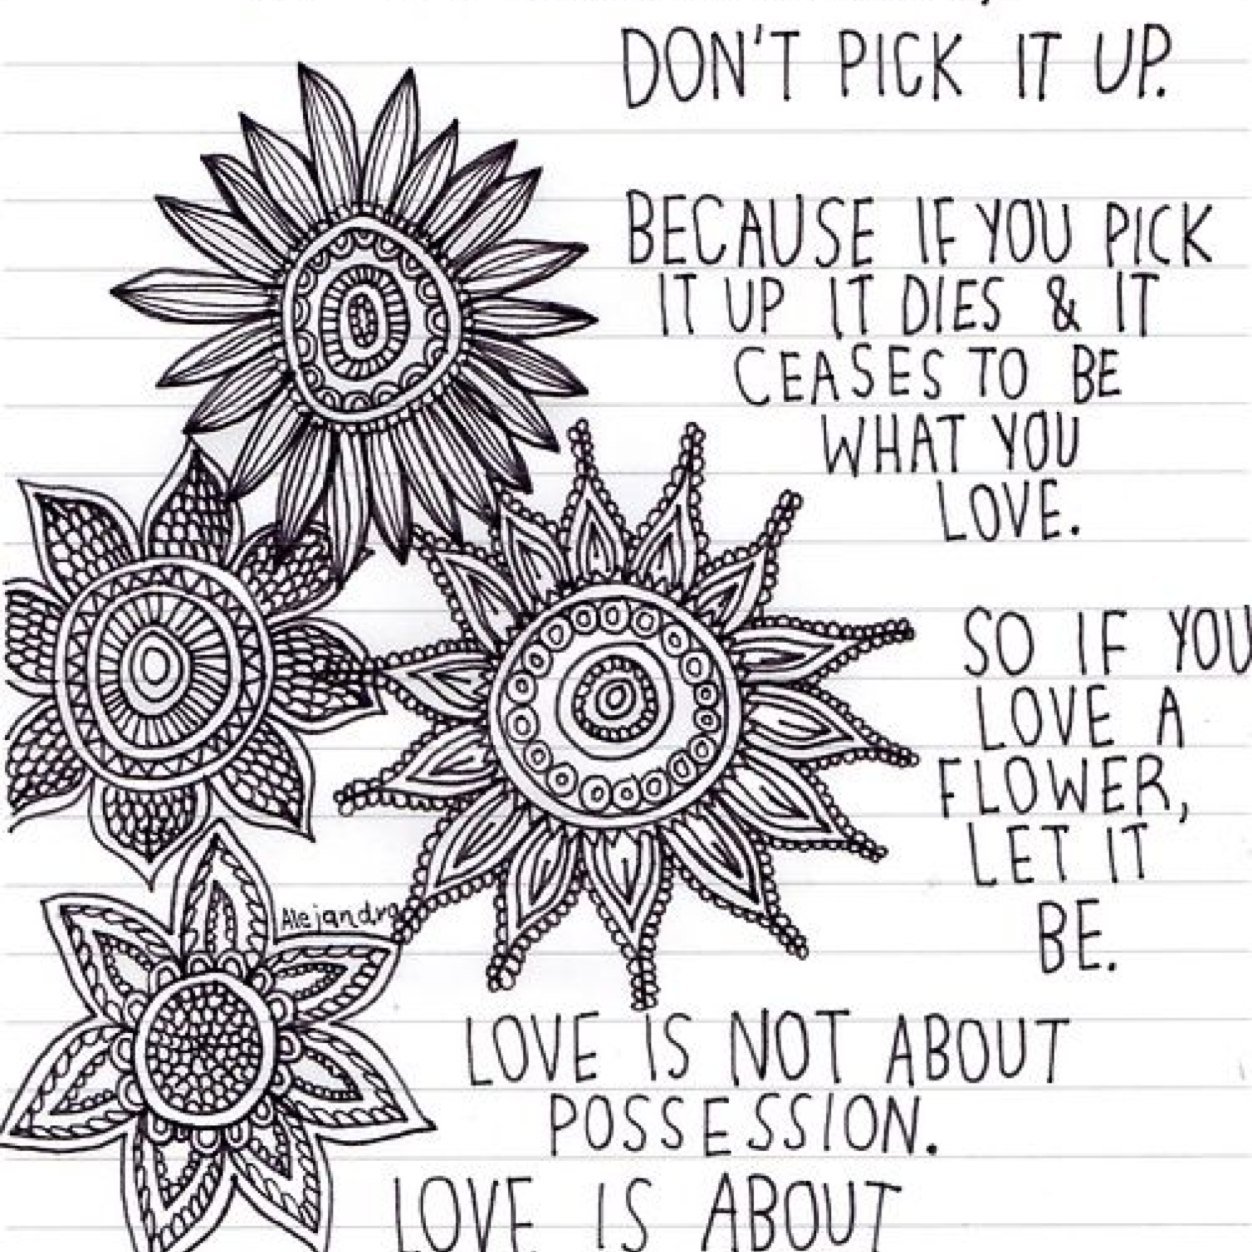 DON'T PICK IT UP.
BECAUSE IF YOU PICK
IT UP IT DIES & IT
CEASES TO BE
WHAT YOU
LOVE.
SO IF YOU
LOVE A
FLOWER,
LET IT
BE.
Alejandra
LOVE IS NOT ABOUT
POSSESSION.
LOVE IS ABOUT